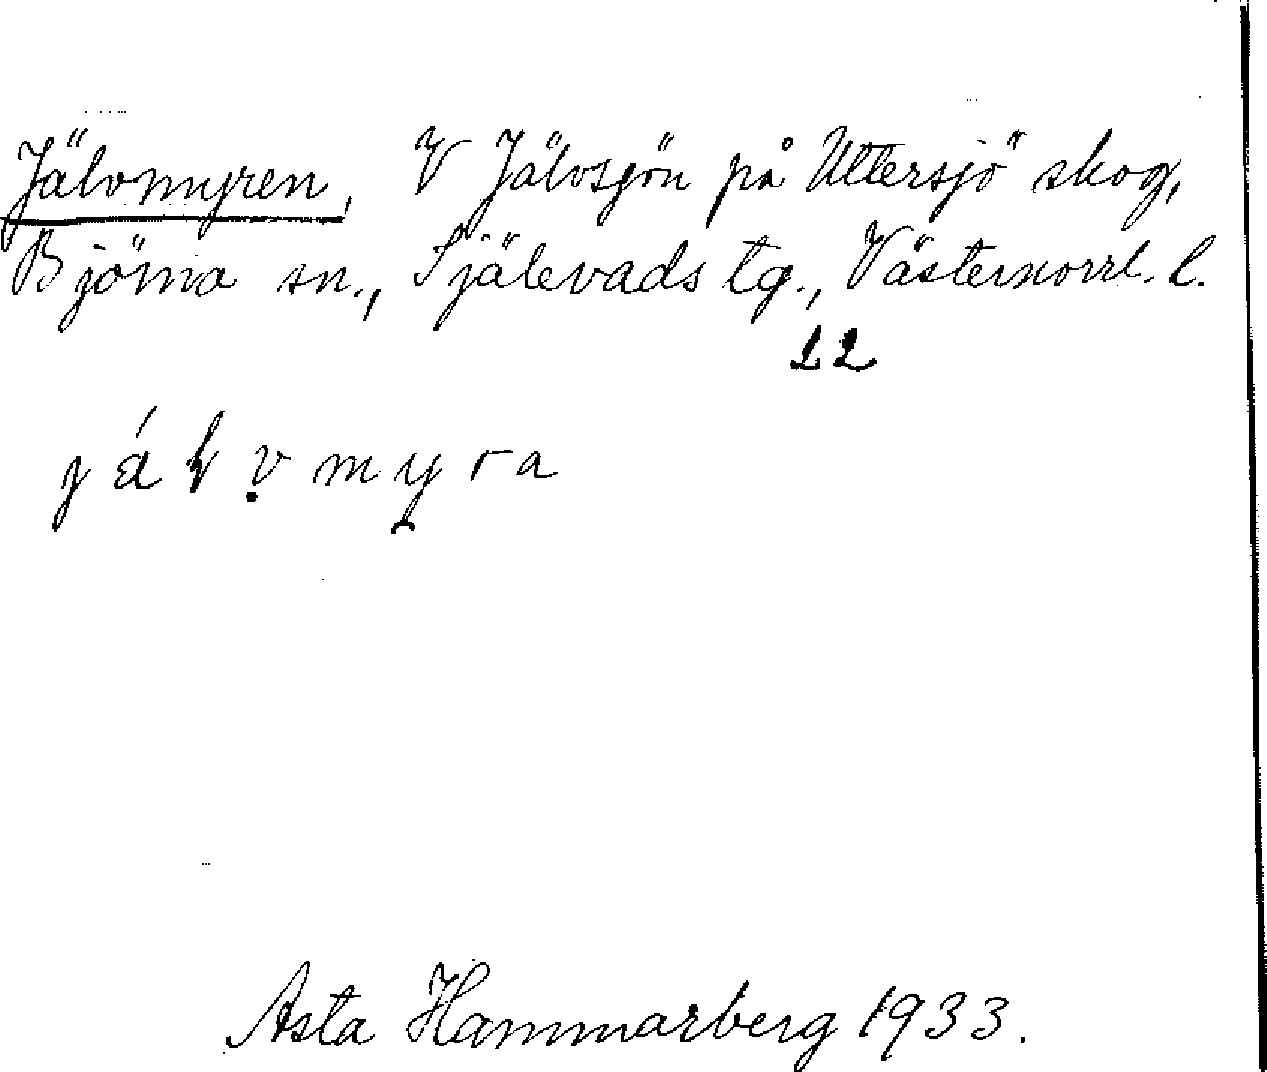 Jälvmyren, V Jälvsjön på Uttersjö skog,
Björna sn., Själevads tg., Västernorrl. l.
22
Asta Hammarberg 1933.